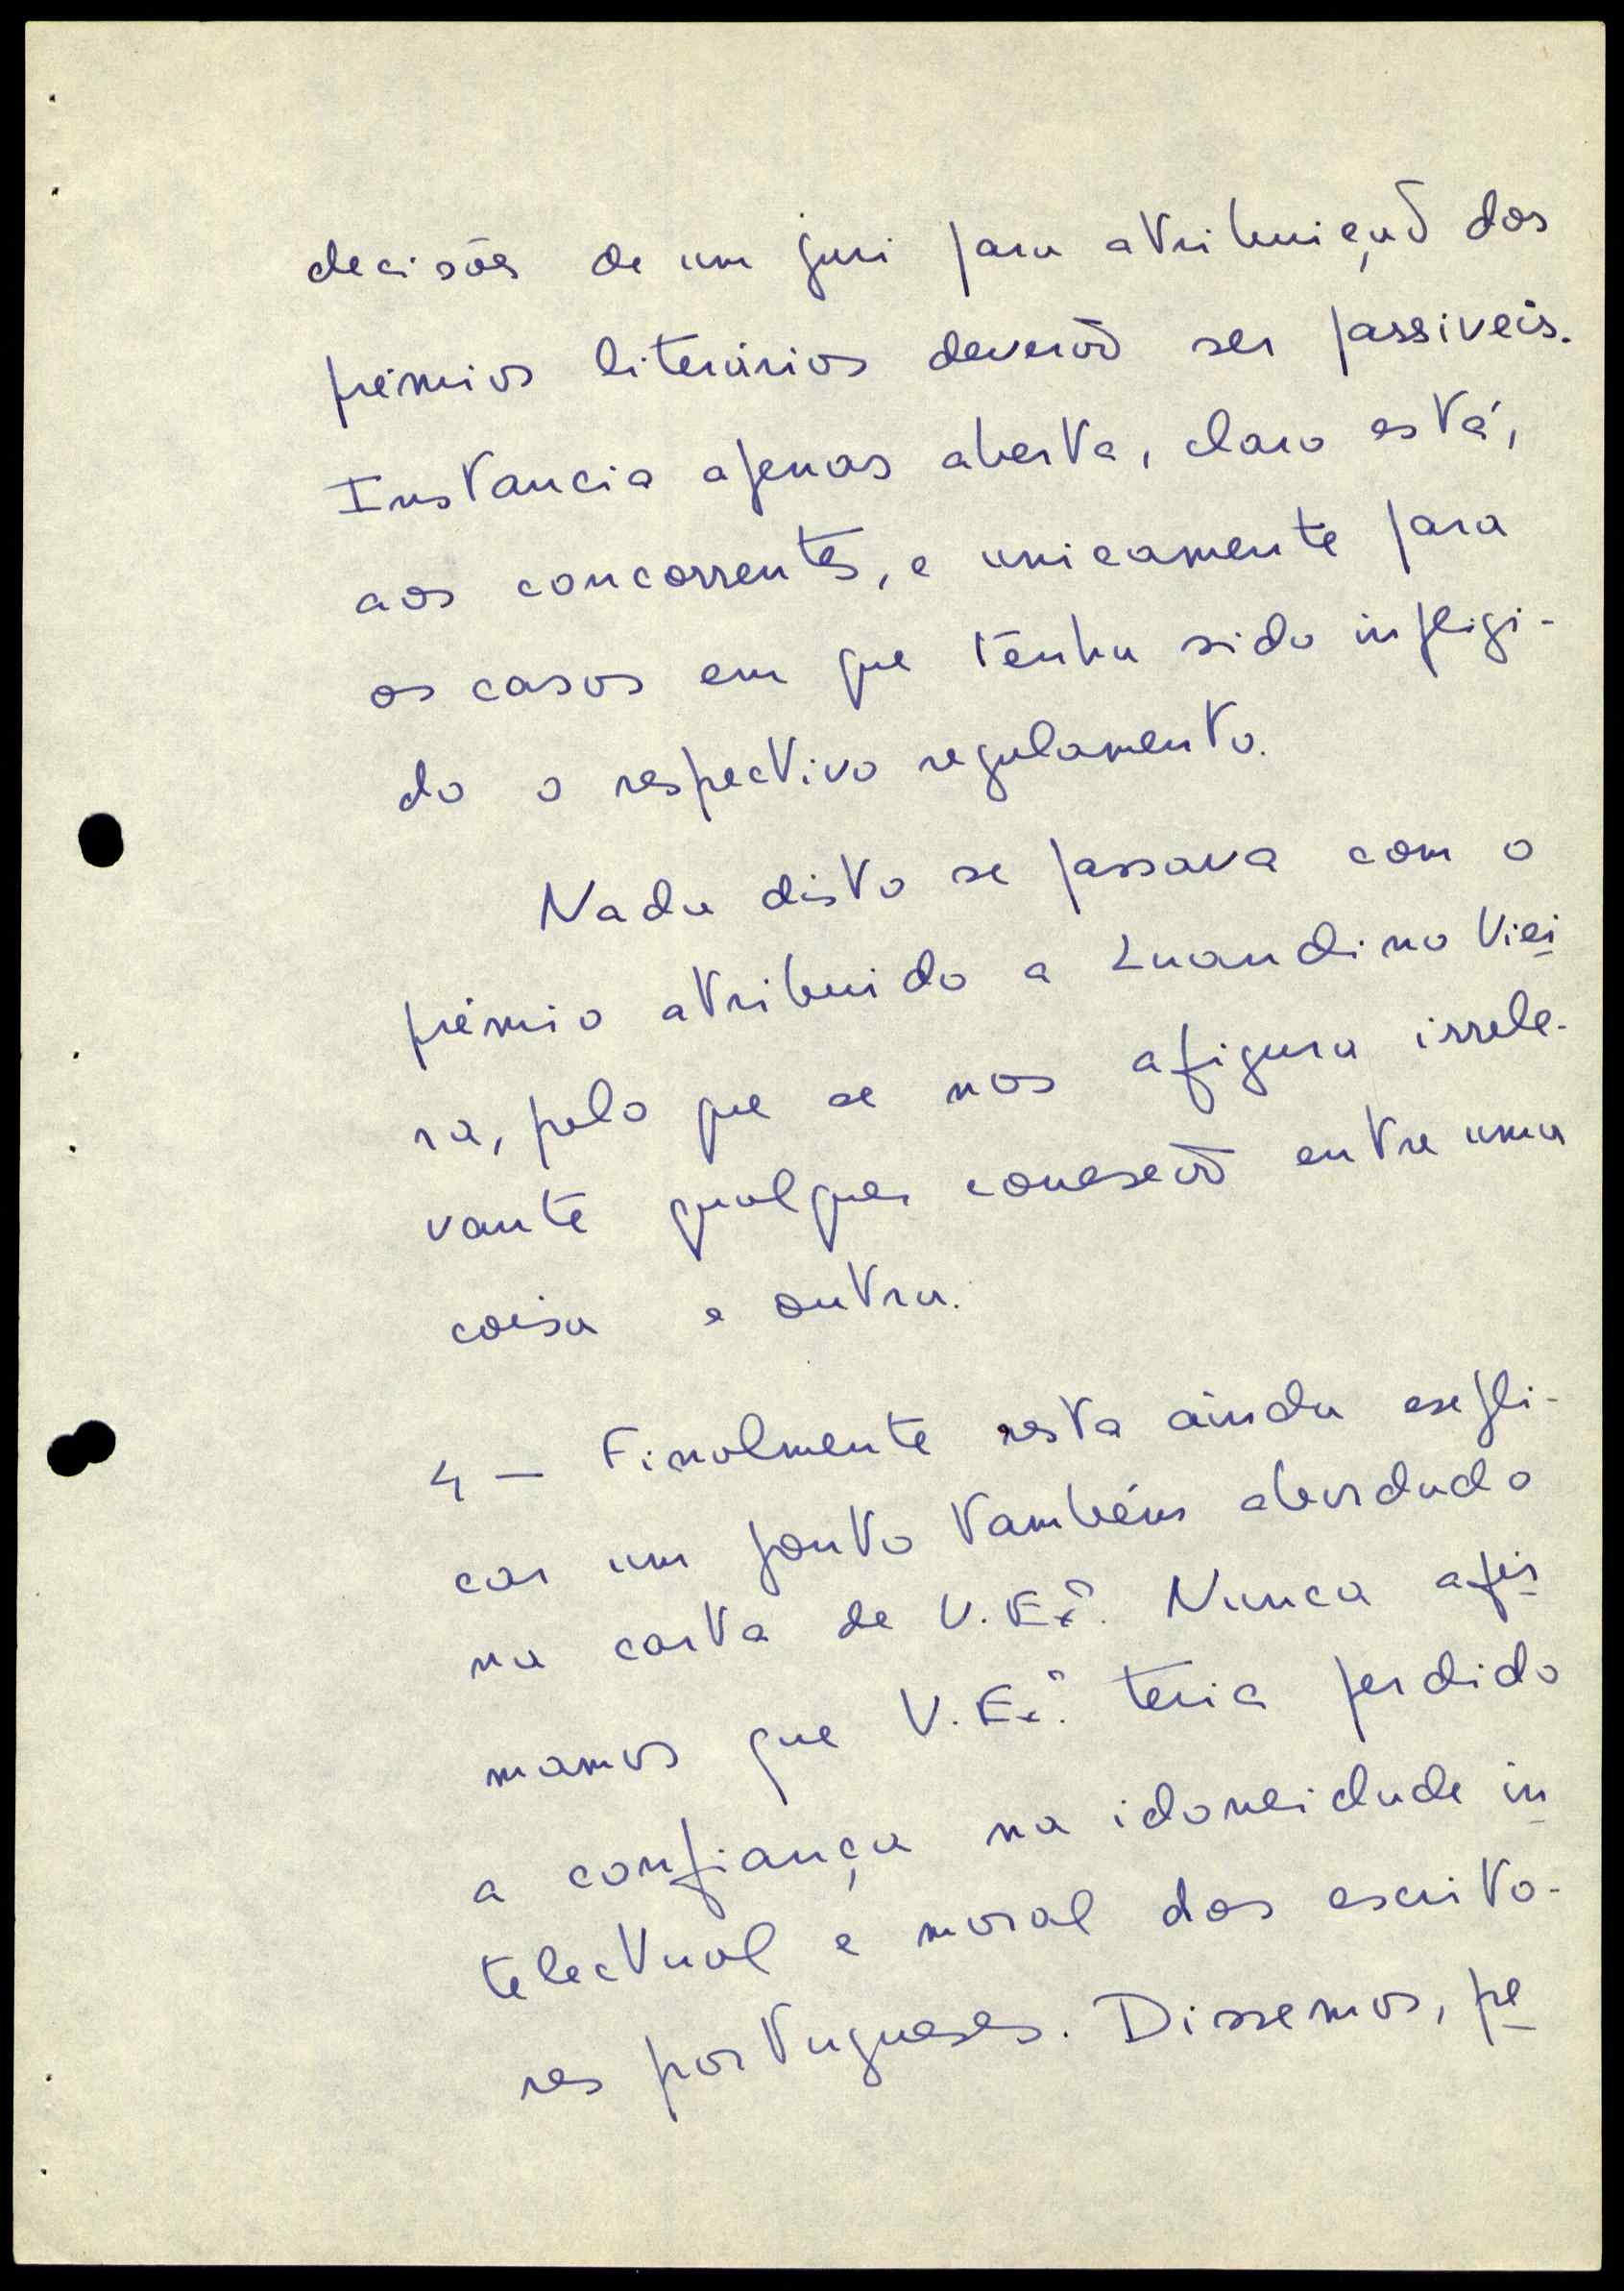 decisões de um juri para atribuição dos
prémios literários deverão ser passiveis.
Instancia apenas aberta, claro está,
aos concorrentes, e unicamente para
os casos em que tenha sido infligi-
do o respectivo regulamento.
Nada disto se passava com o
prémio atribuido a Luandino Viei
ra, pelo que se nos afigura irrele-
vante qualquer conexão entre uma
coisa e outra.
4 — Finalmente resta ainda expli-
car um ponto também abordado
na carta de V. Exª. Nunca afir
mamos que V. Exª. teria perdido
a confiança na idoneidade in
telectual e moral dos escrito-
res portugueses. Dissemos, pe